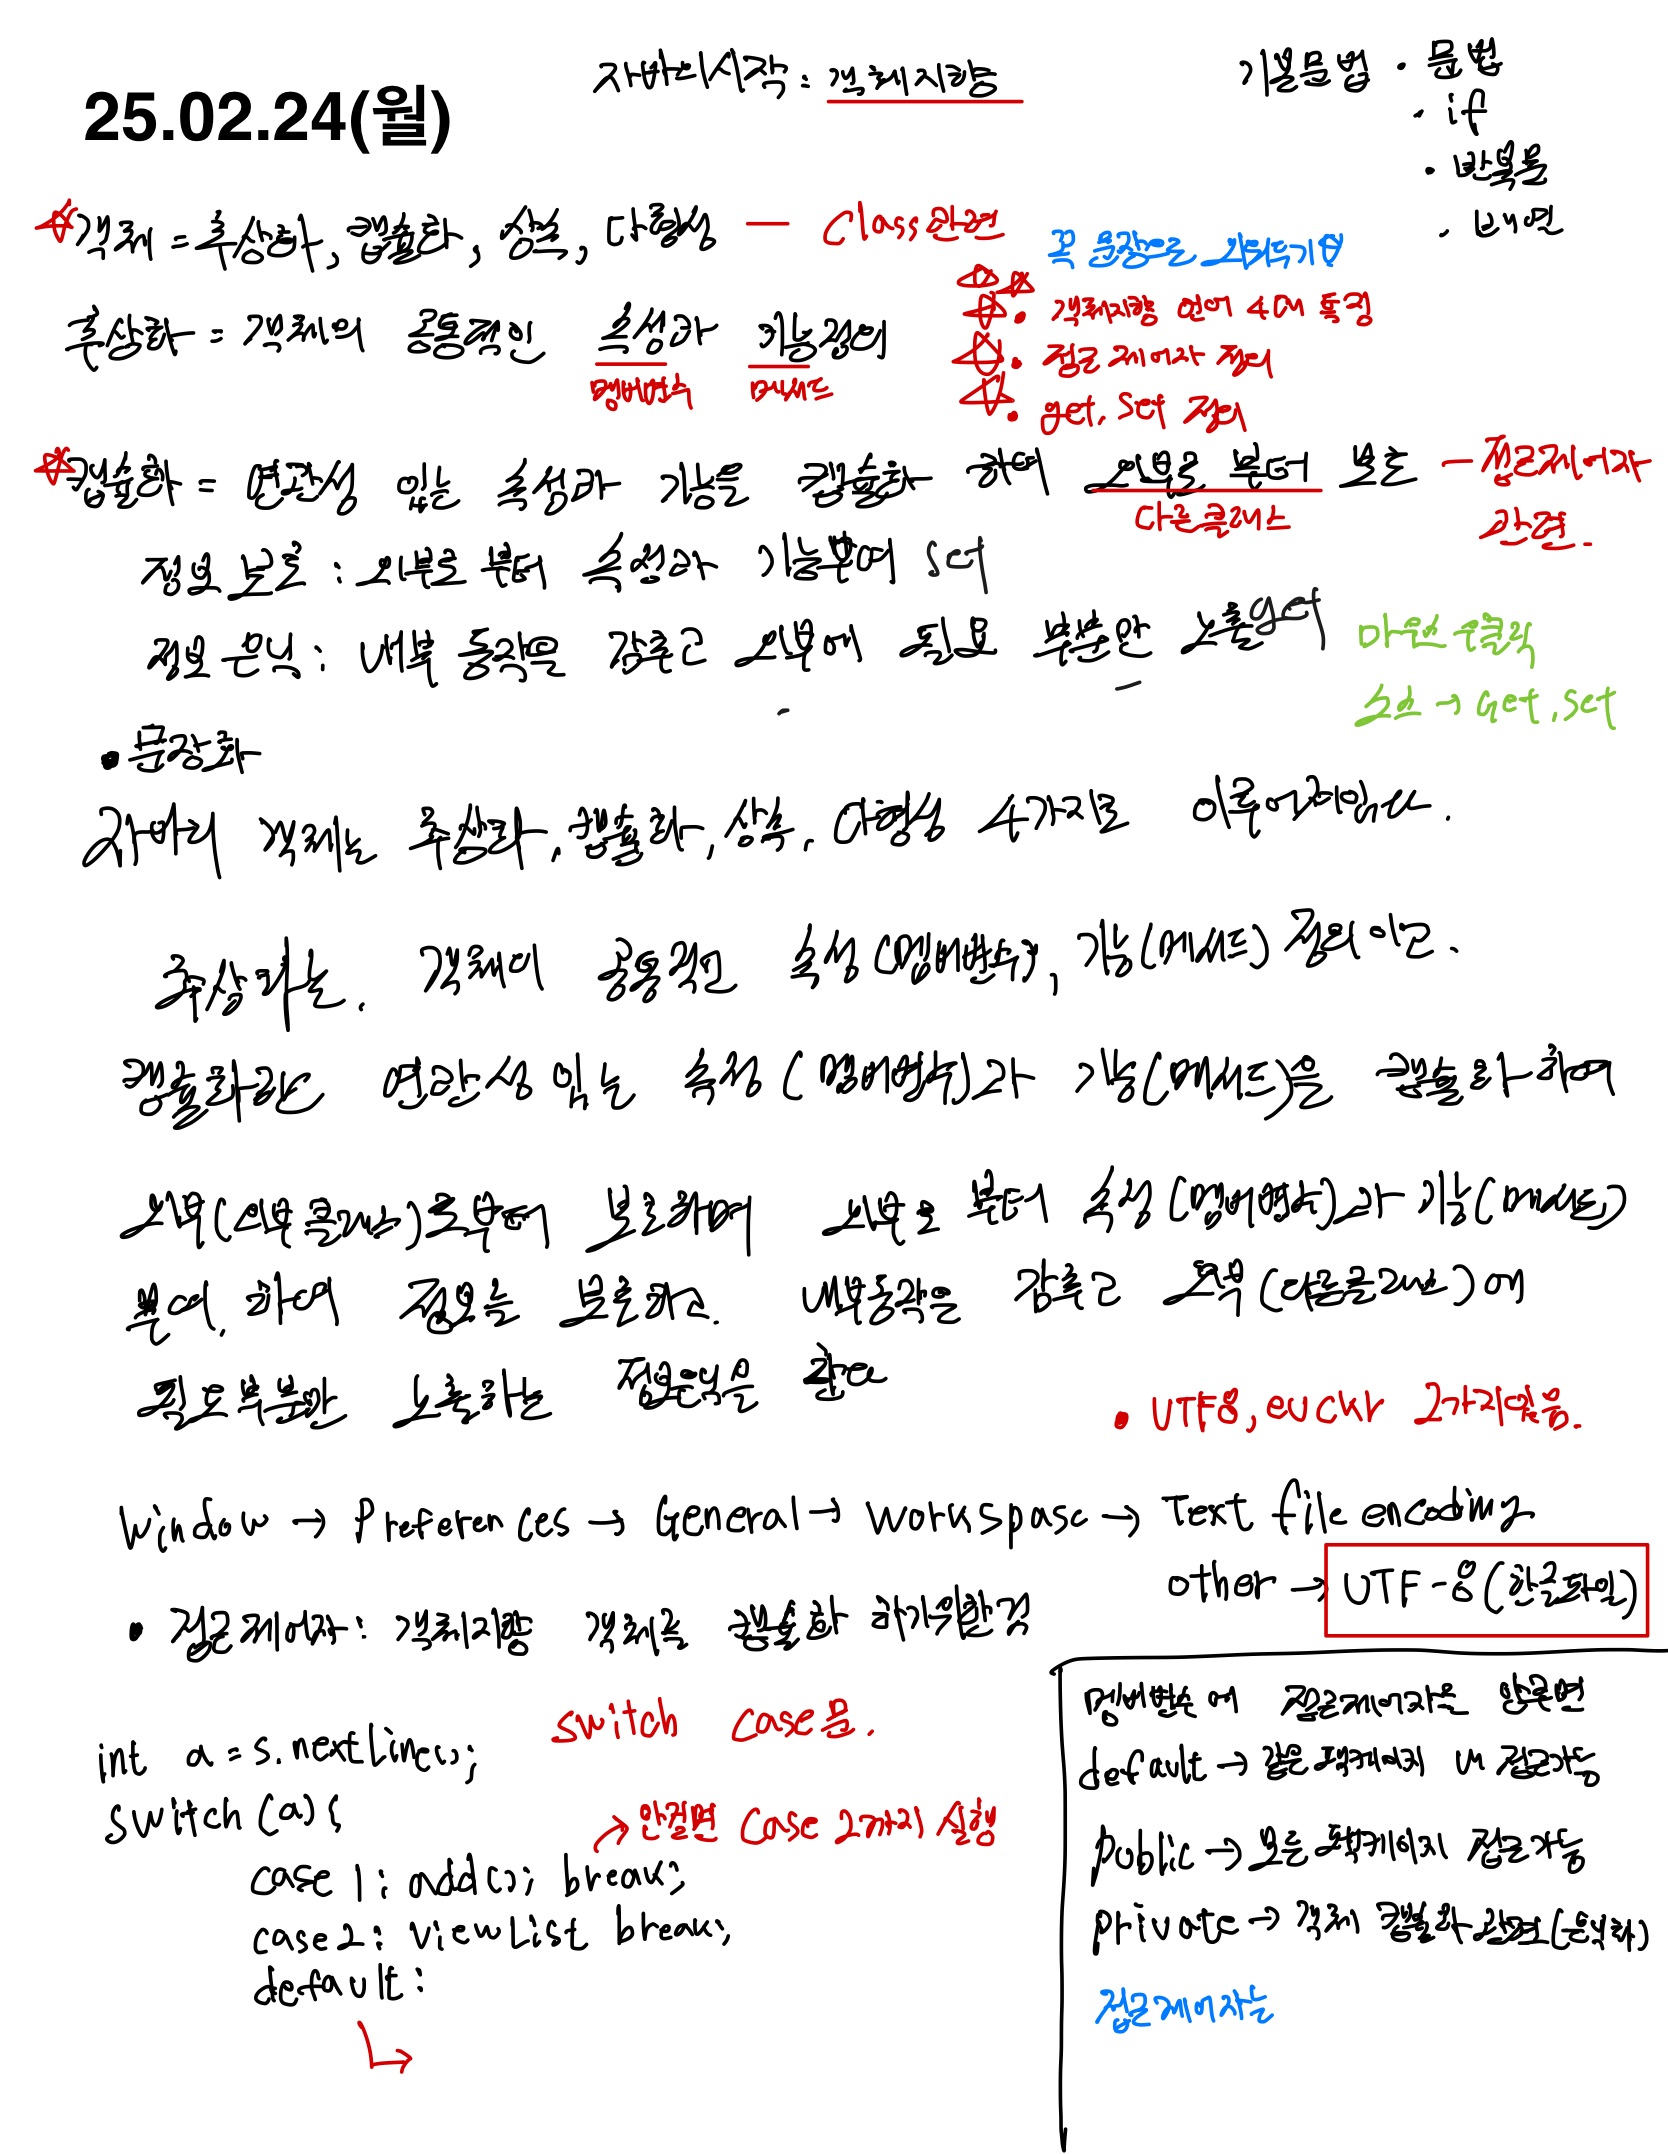 25.02.24(월)
자바의시작 : 객체지향
기본문법 · 문법
· if
· 반복문
· 배열
객체 = 추상화, 캡슐화, 상속, 다형성 — Class관련
꼭 문장으로 외워두기
추상화 = 객체의 공통적인 속성과 기능정의
멤버변수 메서드
· 객체지향 언어 4대 특징
· 접근 제어자 정의
· get, set 정의
캡슐화 = 연관성 있는 속성과 기능을 캡슐화 하여 외부로 부터 보호 - 접근제어자
다른클래스
관련.
정보 보호 : 외부로 부터 속성과 기능부여 set
정보 은닉 : 내부 동작을 감추고 외부에 필요 부분만 노출 get
마우스 우클릭
소스 → Get, set
• 문장화
자바의 객체는 추상화, 캡슐화, 상속, 다형성 4가지로 이루어져있다.
추상화는. 객체의 공통적인 속성(멤버변수), 기능(메서드) 정의 이고.
캡슐화란 연관성 있는 속성(멤버변수)과 기능(메서드)을 캡슐화하여
외부(외부클래스)로부터 보호하며 외부로 부터 속성(멤버변수)과 기능(메서드)
부여. 하여 정보를 보호하고. 내부동작은 감추고 외부(다른클래스)에
필요부분만 노출하는 정보은닉을 한다
• UTF8, euckr 2가지있음.
window → Preferences → General → workspasc → Text file encoding
other → UTF-8(한글파일)
• 접근제어자 : 객체지향 객체를 캡슐화 하기위한것
switch case문.
int a = s.nextLine();
switch (a) {
→ 안걸면 case 2까지 실행
case 1 : add(); break;
case2 : viewList break;
default :
멤버변수에 접근제어자를 안쓰면
default → 같은 패키지 내 접근가능
public → 모든 패키지 접근가능
private → 객체 캡슐화 관련(은닉화)
접근제어자는